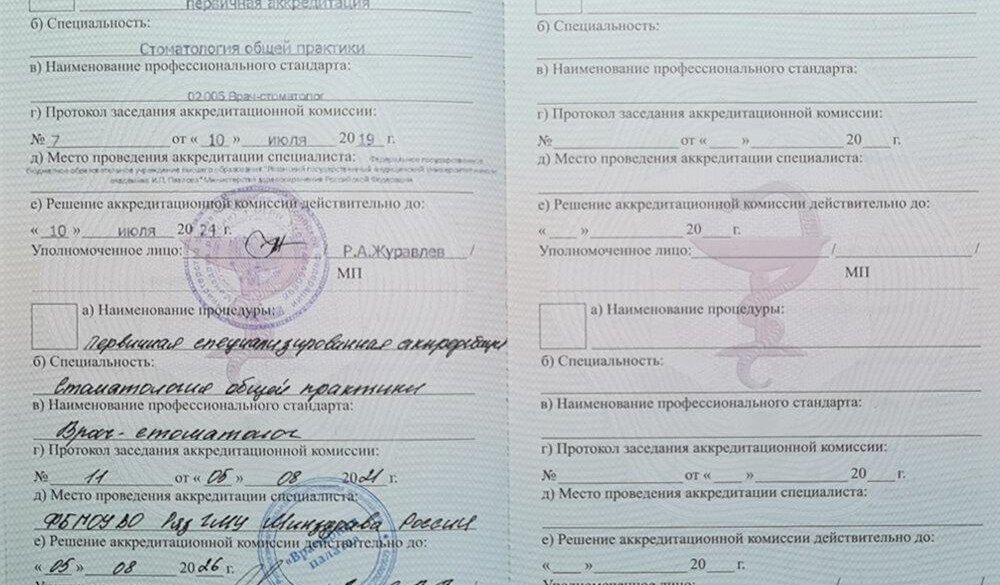 первичная аккредитация
б) Специальность:
Стоматология общей практики
в) Наименование профессионального стандарта:
02.005 Врач-стоматолог
г) Протокол заседания аккредитационной комиссии:
№ 7 от « 10 » июля 2019 г.
д) Место проведения аккредитации специалиста: Федеральное государственное
бюджетное образовательное учреждение высшего образования "Рязанский государственный медицинский университет имени
академика И.П. Павлова" Министерства здравоохранения Российской Федерации
е) Решение аккредитационной комиссии действительно до:
« 10 » июля 2024 г.
Уполномоченное лицо: / Р.А.Журавлев /
МП
а) Наименование процедуры:
первичная специализированная аккредитация
б) Специальность:
Стоматология общей практики
в) Наименование профессионального стандарта:
Врач-стоматолог
г) Протокол заседания аккредитационной комиссии:
№ 11 от « 05 » 08 2021 г.
д) Место проведения аккредитации специалиста:
РязГМУ Минздрава России
е) Решение аккредитационной комиссии действительно до:
« 05 » 08 2026 г.
"Врачебная
палата"
б) Специальность:
в) Наименование профессионального стандарта:
г) Протокол заседания аккредитационной комиссии:
№ от « » 20 г.
д) Место проведения аккредитации специалиста:
е) Решение аккредитационной комиссии действительно до:
« » 20 г.
Уполномоченное лицо: / /
МП
а) Наименование процедуры:
б) Специальность:
в) Наименование профессионального стандарта:
г) Протокол заседания аккредитационной комиссии:
№ от « » 20 г.
д) Место проведения аккредитации специалиста:
е) Решение аккредитационной комиссии действительно до:
« » 20 г.
Уполномоченное лицо: